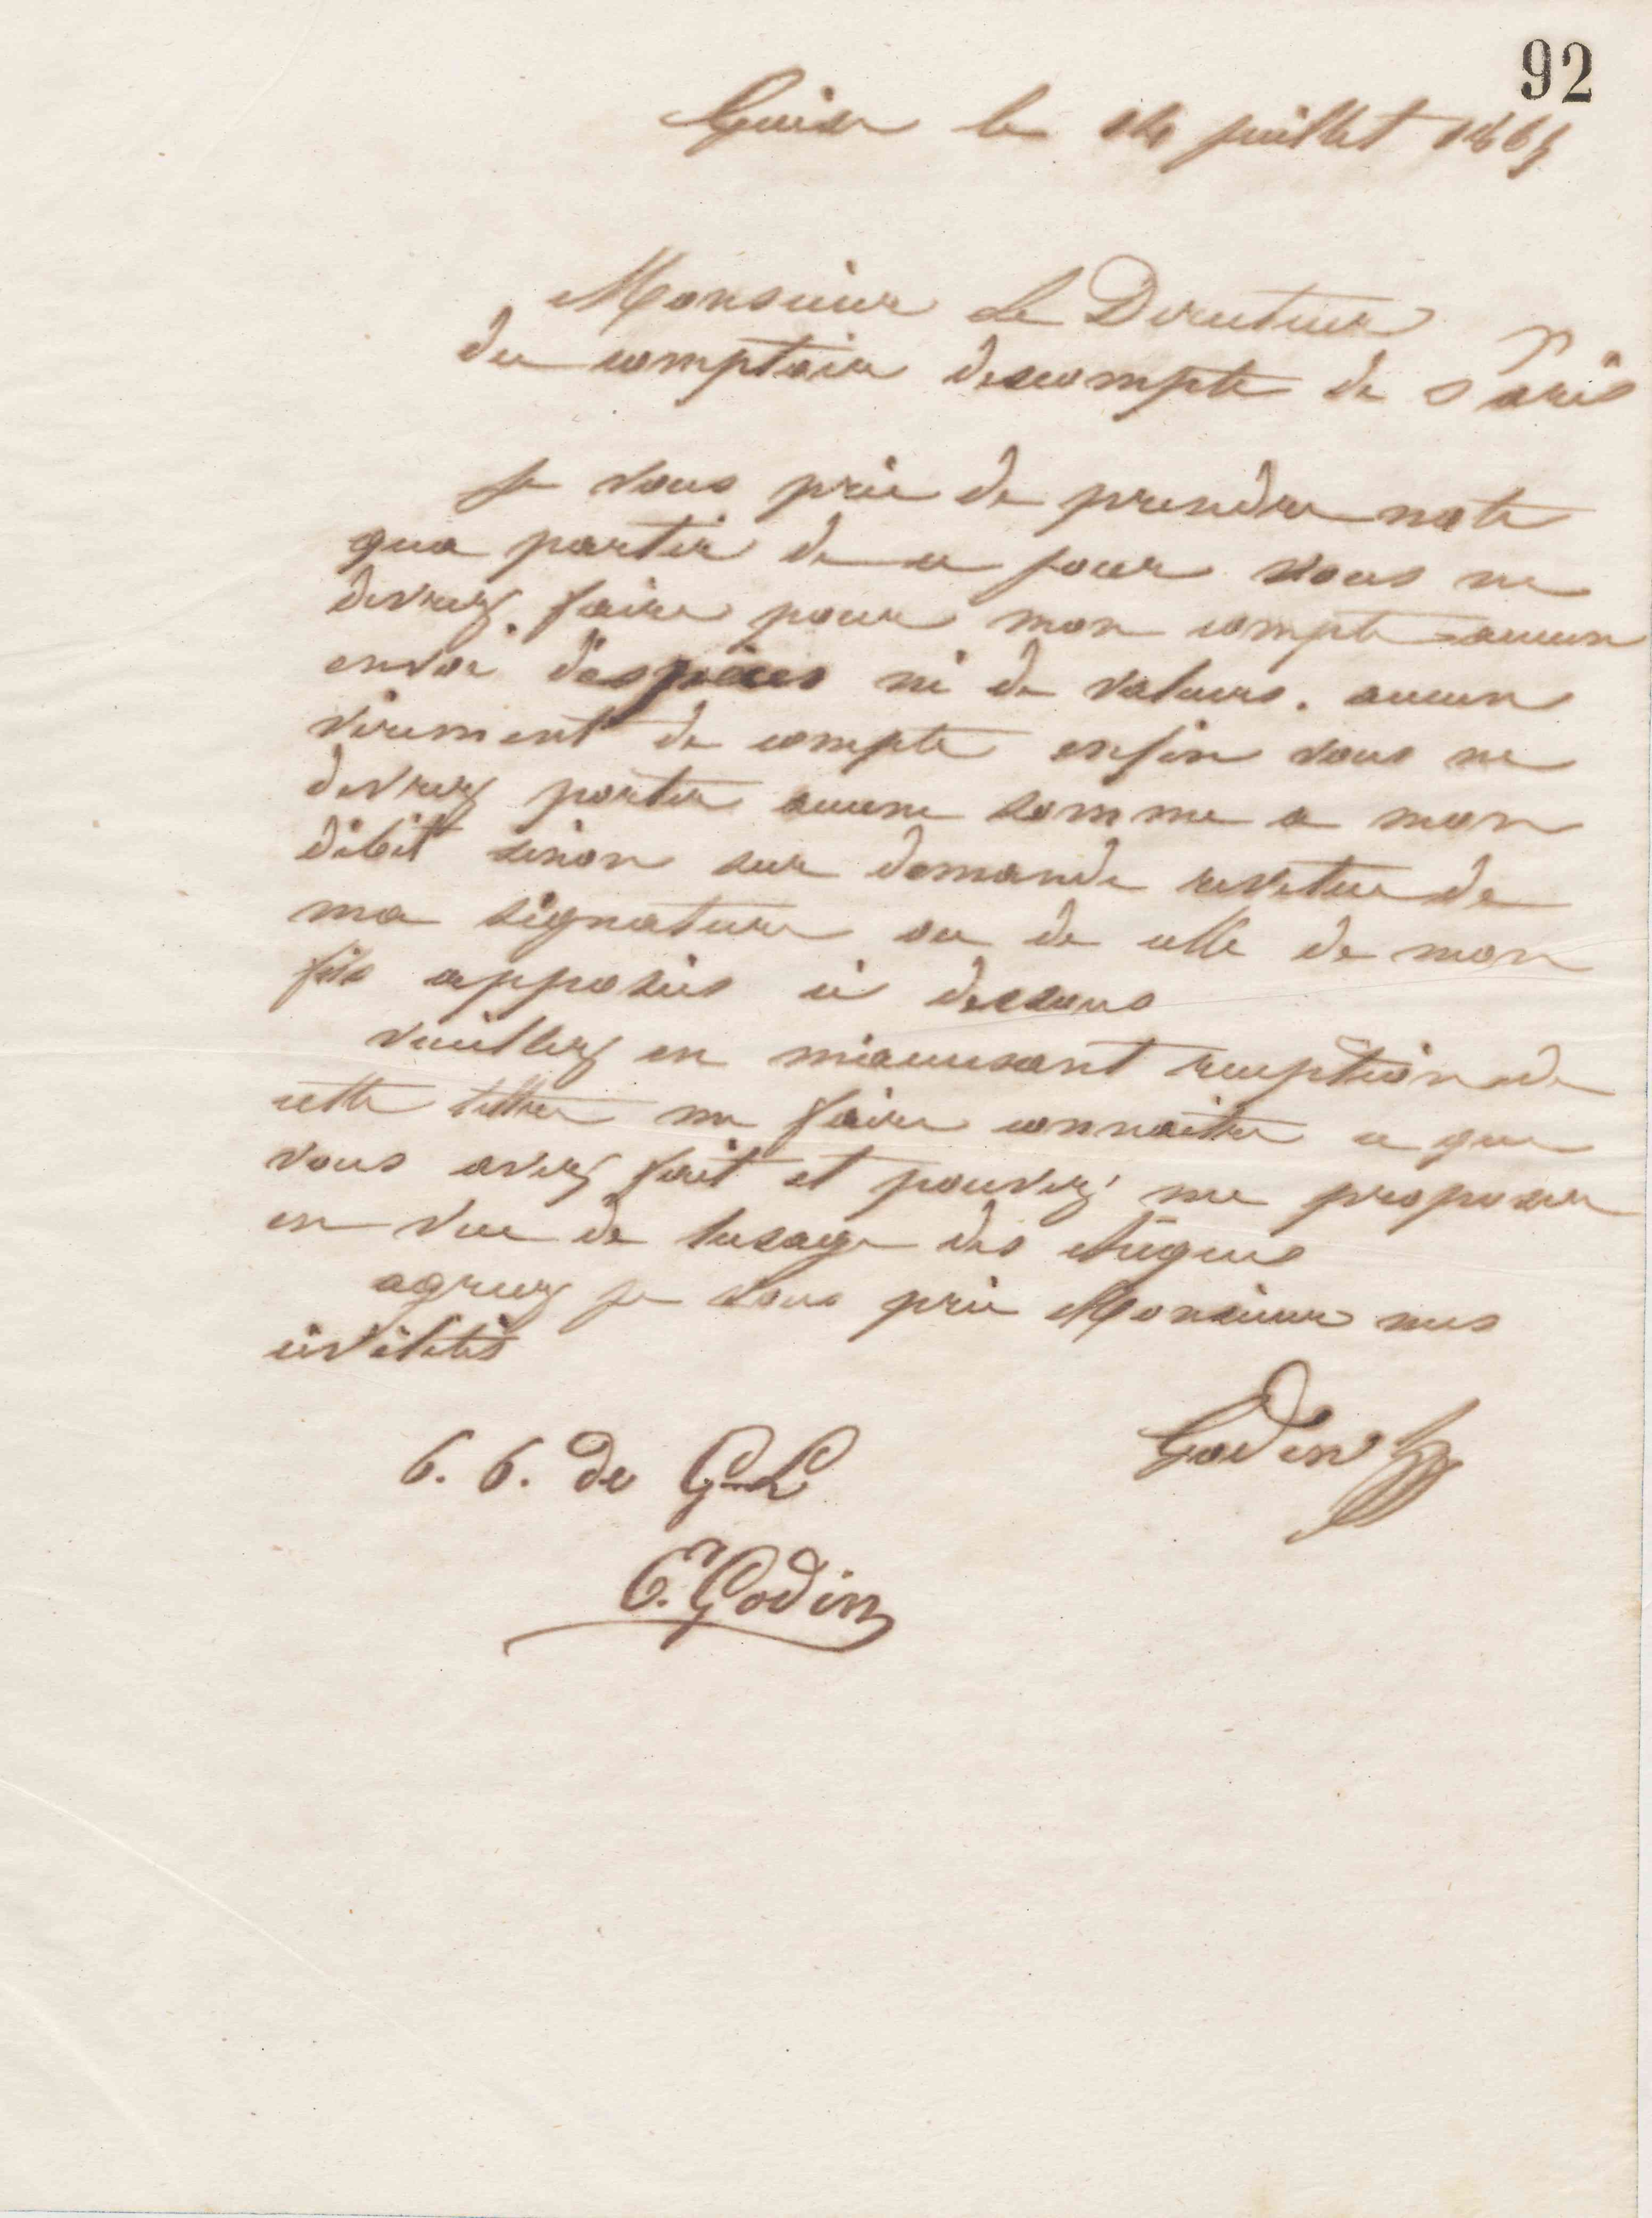 92
Guise le 14 juillet 1865
Monsieur Le Directeur
du comptoir descompte de Paris
je vous prie de prendre note
qua partir de ce jour vous ne
devrez faire pour mon compte aucun
envoi despèces ni de valeurs. aucun
virement de compte enfin vous ne
devrez porter aucune somme a mon
débit sinon sur demande revetue de
ma signature ou de celle de mon
fils apposées ci dessous
veuillez en m'accusant reception de
cette lettre me faire connaitre ce que
vous avez fait et pouvez me proposer
en vue de lusage des chèques
agreez je vous prie Monsieur mes
civilités
Godin
de G-L
E. Godin